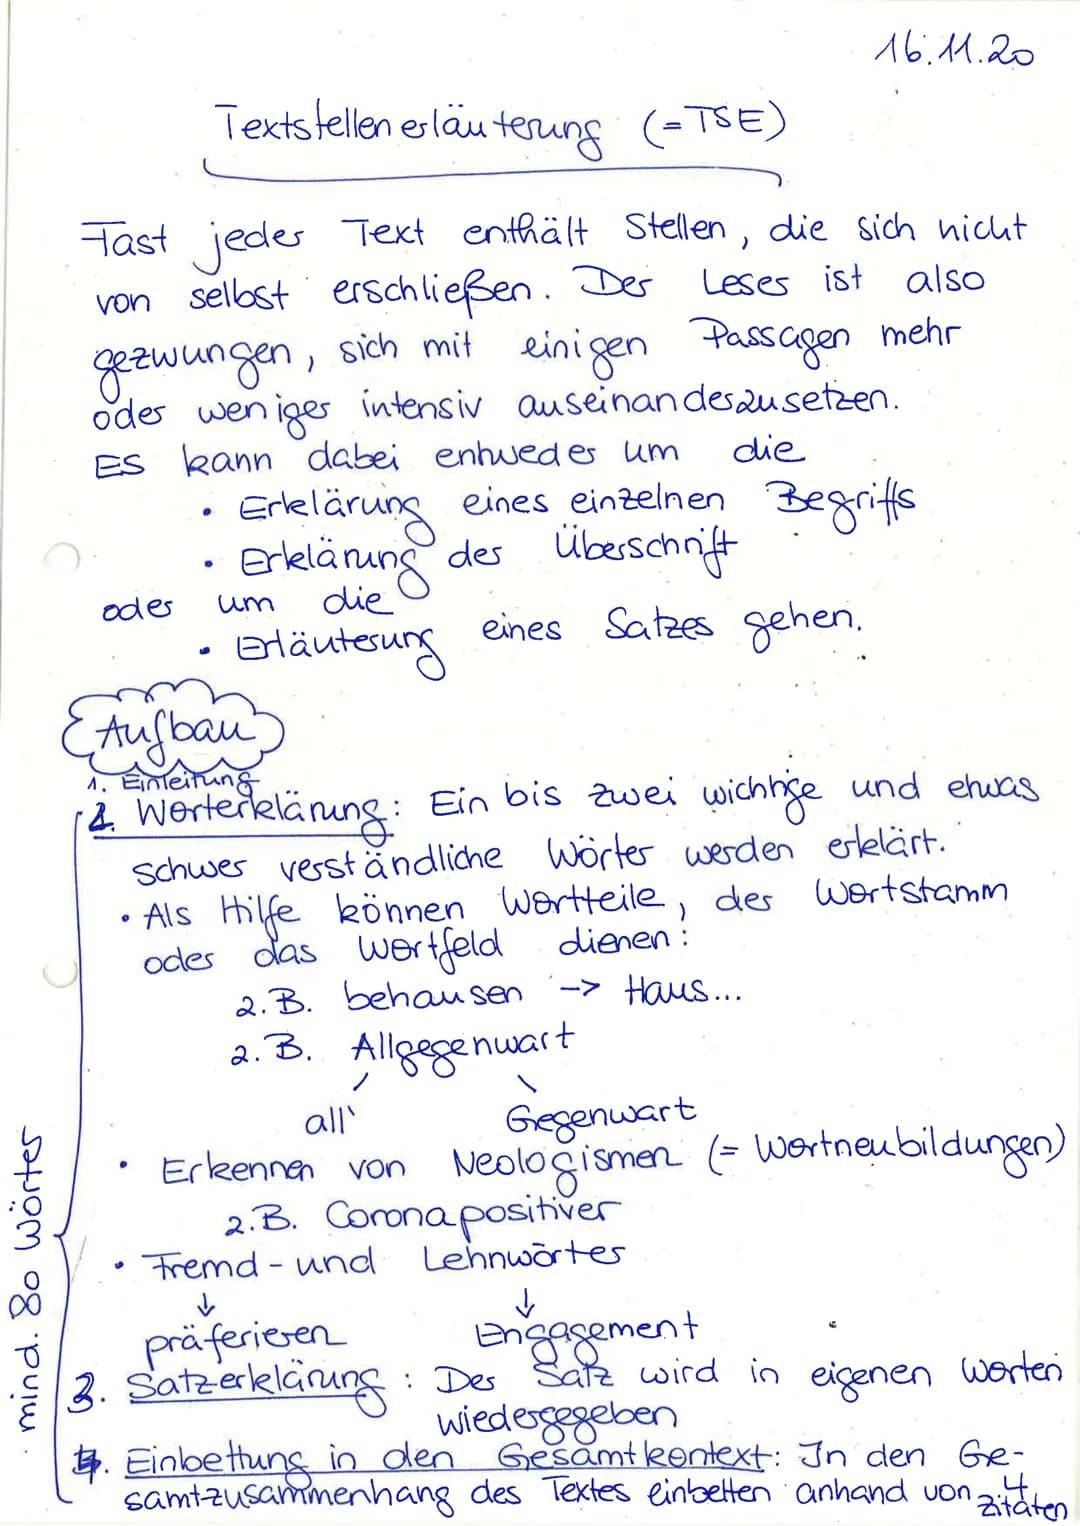 16.11.20
Textstellenerläuterung (=TSE)
Fast jeder Text enthält Stellen, die sich nicht
von selbst erschließen. Der Leser ist also
gezwungen, sich mit einigen Passagen mehr
oder weniger intensiv auseinanderzusetzen.
Es kann dabei entweder um die
• Erklärung eines einzelnen Begriffs
• Erklärung der Überschrift
oder um die
• Erläuterung eines Satzes gehen.
Aufbau
1. Einleitung
2. Worterklärung: Ein bis zwei wichtige und etwas
schwer verständliche Wörter werden erklärt.
• Als Hilfe können Wortteile, der Wortstamm
oder das Wortfeld dienen:
z.B. behausen -> Haus...
z.B. Allgegenwart
all Gegenwart
• Erkennen von Neologismen (= Wortneubildungen)
z.B. Coronapositiver
• Fremd- und Lehnwörter
↓ ↓
präferieren Engagement
3. Satzerklärung: Der Satz wird in eigenen Worten
wiedergegeben
4. Einbettung in den Gesamtkontext: In den Ge-
samtzusammenhang des Textes einbetten anhand von 4
Zitaten
mind. 80 Wörter